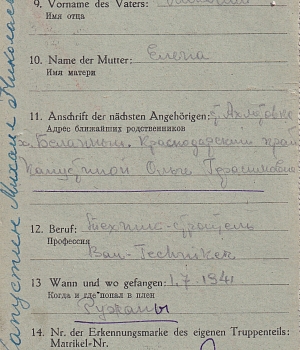 9. Vorname des Vaters:
Имя отца
10. Name der Mutter: Елена
Имя матери
11. Anschrift der nächsten Angehörigen:
Адрес ближайших родственников
Краснодарский край
Ольге Герасимовной
12. Beruf: Техник-строитель
Профессия
Bau-Techniker
13 Wann und wo gefangen: 1.7-1941
Когда и где попал в плен
Ружаны
14. Nr. der Erkennungsmarke des eigenen Truppenteils:
Matrikel-Nr.
Капустин Михаил Николаев